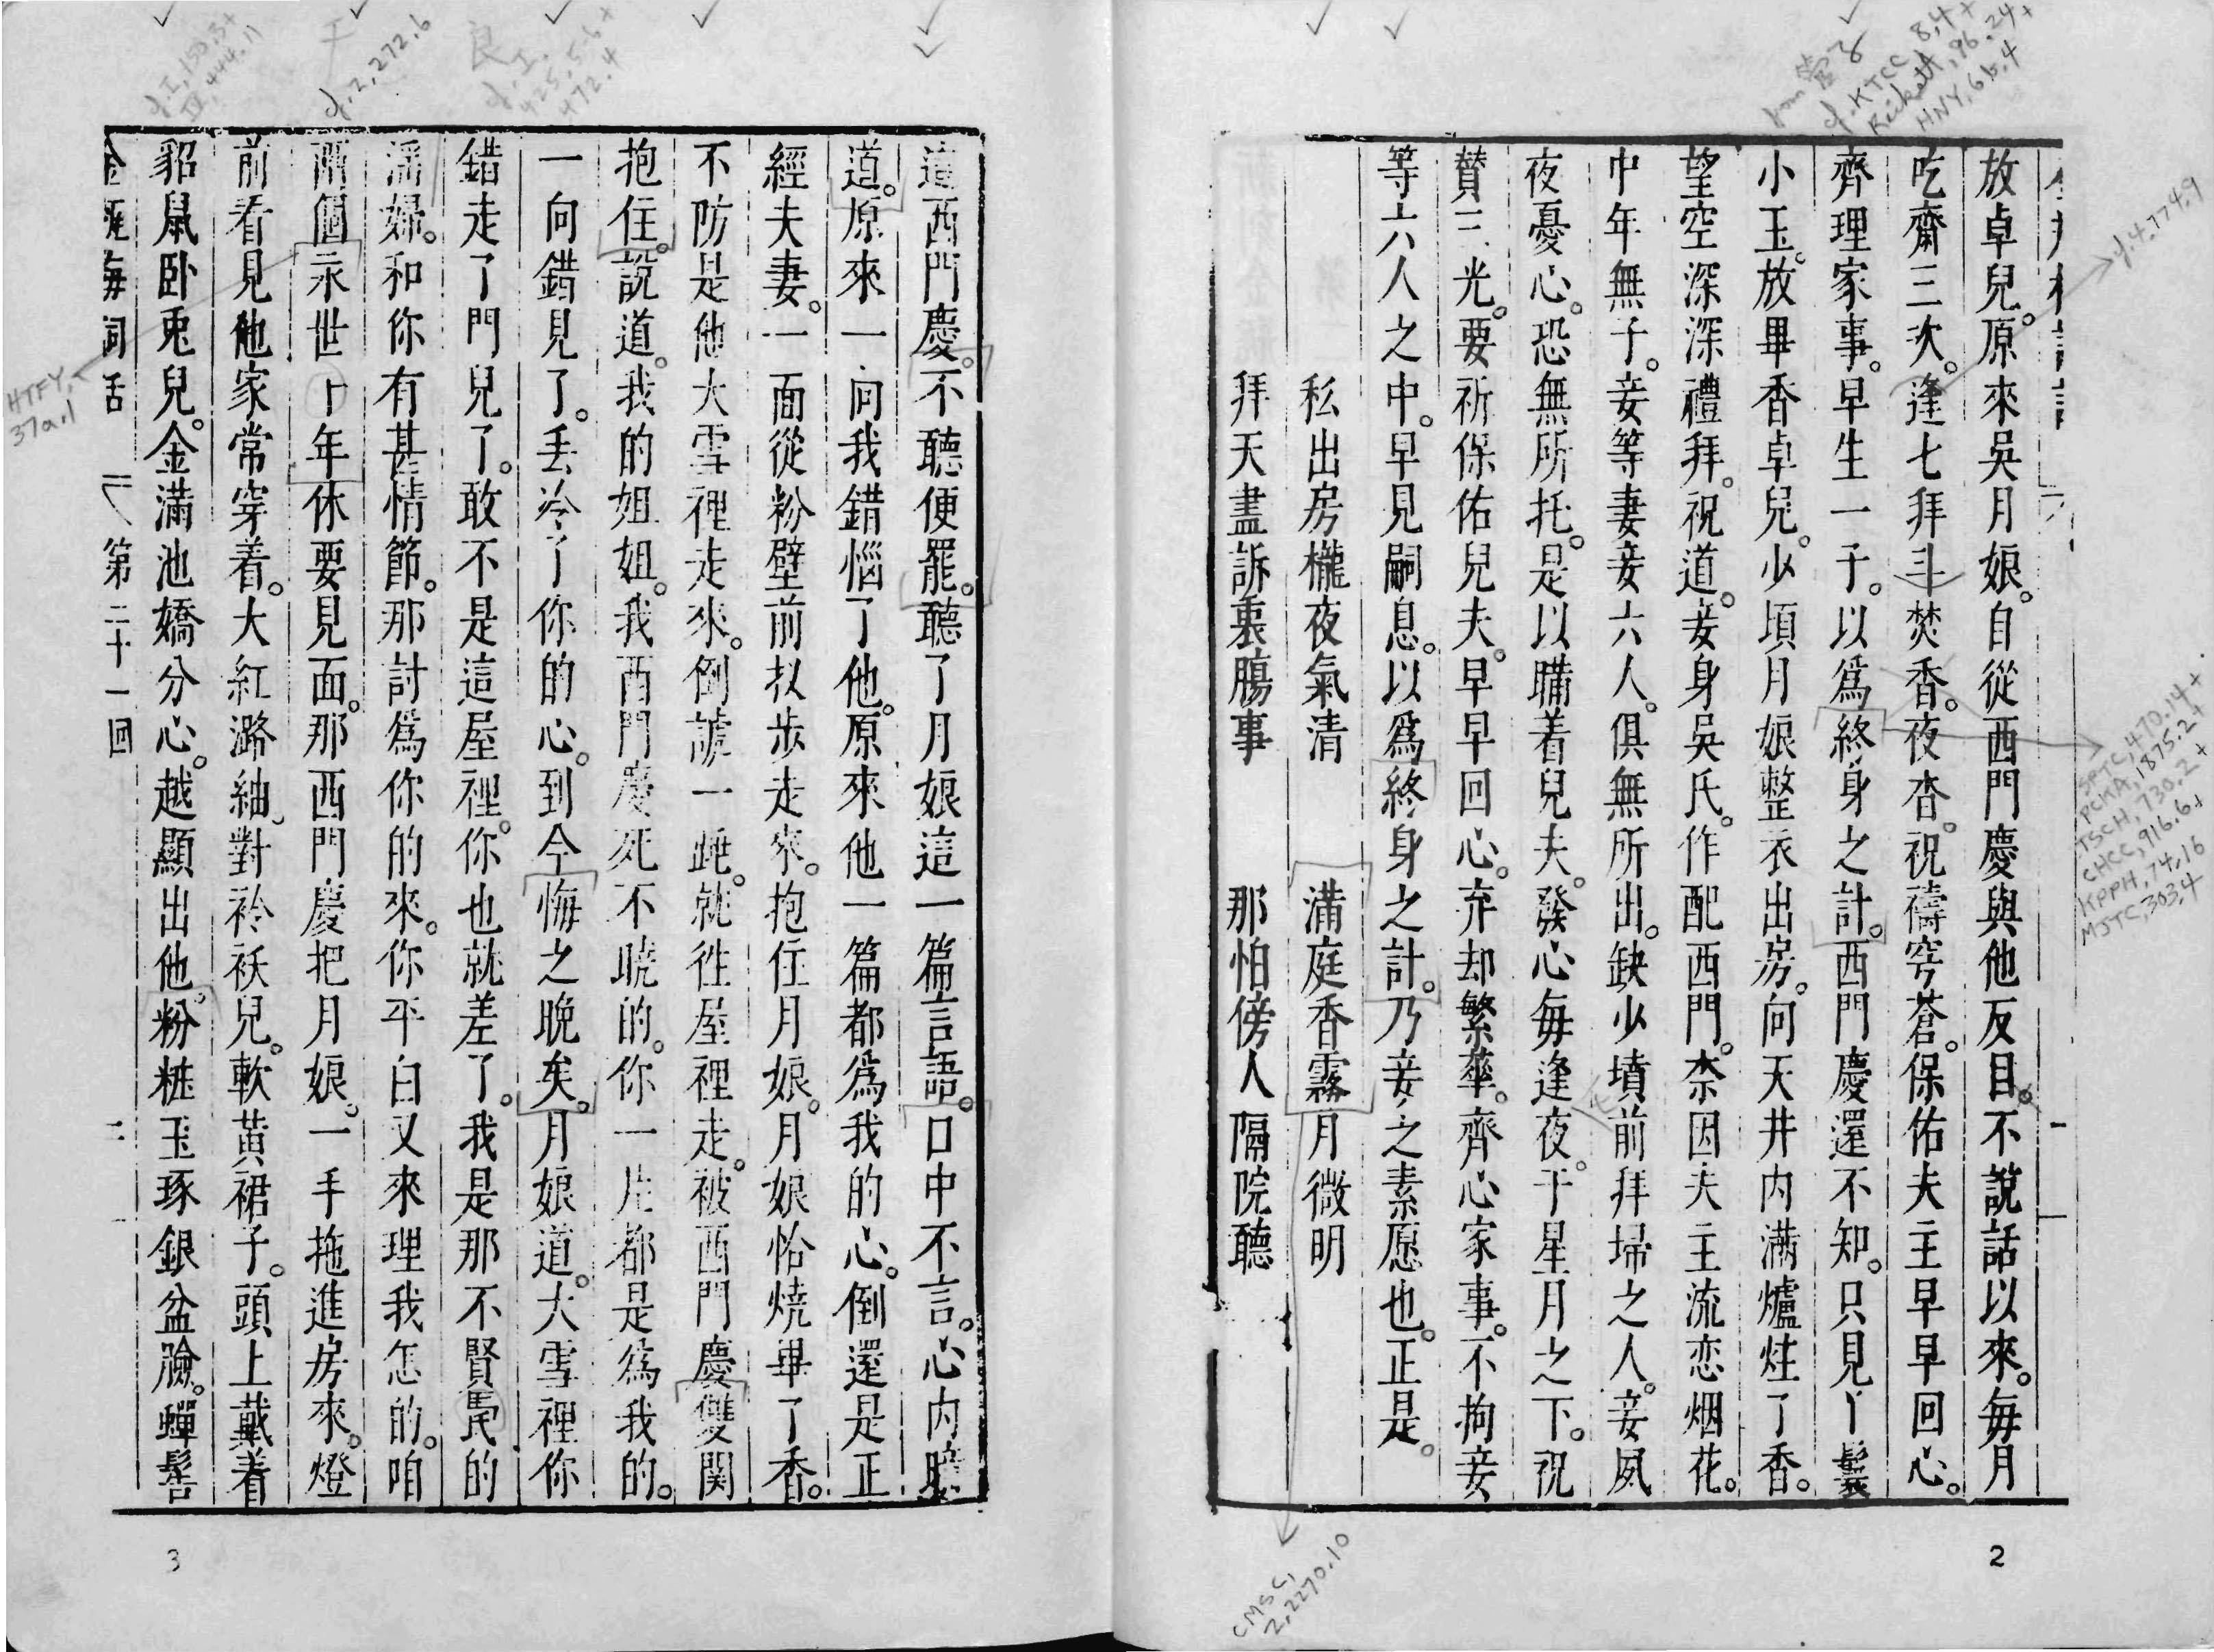 放卓兒。原來吳月娘。自從西門慶與他反目。不說話以來。每月
吃齋三次。逢七拜斗焚香。夜杳。祝禱穹蒼。保佑夫主早早回心。
齊理家事。早生一子。以爲終身之計。西門慶還不知。只見丫鬟
小玉。放畢香卓兒。少頃月娘整衣出房。向天井內滿爐炷了香。
望空深深禮拜。祝道。妾身吳氏。作配西門。柰因夫主流恋烟花。
中年無子。妾等妻妾六人。俱無所出。缺少墳前拜掃之人。妾夙
夜憂心。恐無所托。是以瞞着兒夫。發心每逢夜。于星月之下。祝
贊三光。要祈保佑兒夫。早早回心。弃却繁華。齊心家事。不拘妾
等六人之中。早見嗣息。以爲終身之計。乃妾之素愿也。正是。
私出房櫳夜氣清 滿庭香霧月微明
拜天盡訴衷膓事 那怕傍人隔院聽
2
這西門慶。不聽便罷。聽了月娘這一篇言語。口中不言。心內暗
道。原來一向我錯惱了他。原來他一篇都爲我的心。倒還是正
經夫妻。一面從粉壁前扠步走來。抱住月娘。月娘恰燒畢了香。
不防是他大雪裡走來。倒諕一跳。就徃屋裡走。被西門慶雙関
抱住。說道。我的姐姐。我西門慶死不曉的。你一片都是爲我的。
一向錯見了。丢冷了你的心。到今悔之晚矣。月娘道。大雪裡你
錯走了門兒了。敢不是這屋裡。你也就差了。我是那不賢
的
淫婦。和你有甚情節。那討爲你的來。你平白又來理我怎的。咱
兩個永世
年休要見面。那西門慶把月娘。一手拖進房來。燈
前看見他家常穿着。大紅潞紬對衿袄兒。軟黃裙子。頭上戴着
貂鼠卧兔兒。金滿池嬌分心。越顯出他。粉粧玉琢銀盆臉。蟬髻
金瓶梅詞話 第二十一回 二
3
良
cf. 2, 272.6
HTFY, 37a.1
cf. 4, 774.9
from 管子
cf. KTCC, 8.4+
Rickett, 96.24+
HNY, 6b.4
SPTC, 470.14+
PCKA, 1875.2+
TSCH, 730.2+
CHCC, 916.6+
KPPH, 74.16
MJTC, 303.4
CMSC, 2, 2270.10